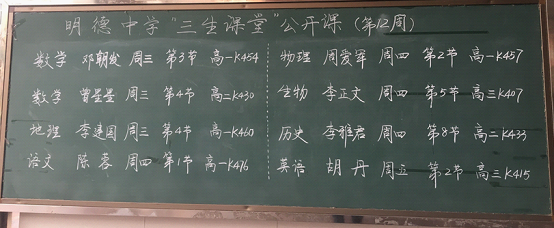 明德中学"三生课堂"公开课(第12周)
数学 邓朝发 周三 第3节 高一K454
数学 曾星星 周三 第4节 高二K430
地理 李建国 周三 第4节 高一K460
语文 陈容 周四 第1节 高一K476
物理 周爱军 周四 第2节 高一K457
生物 李正文 周四 第5节 高三K407
历史 李雅君 周四 第8节 高二K433
英语 胡丹 周五 第2节 高三K415